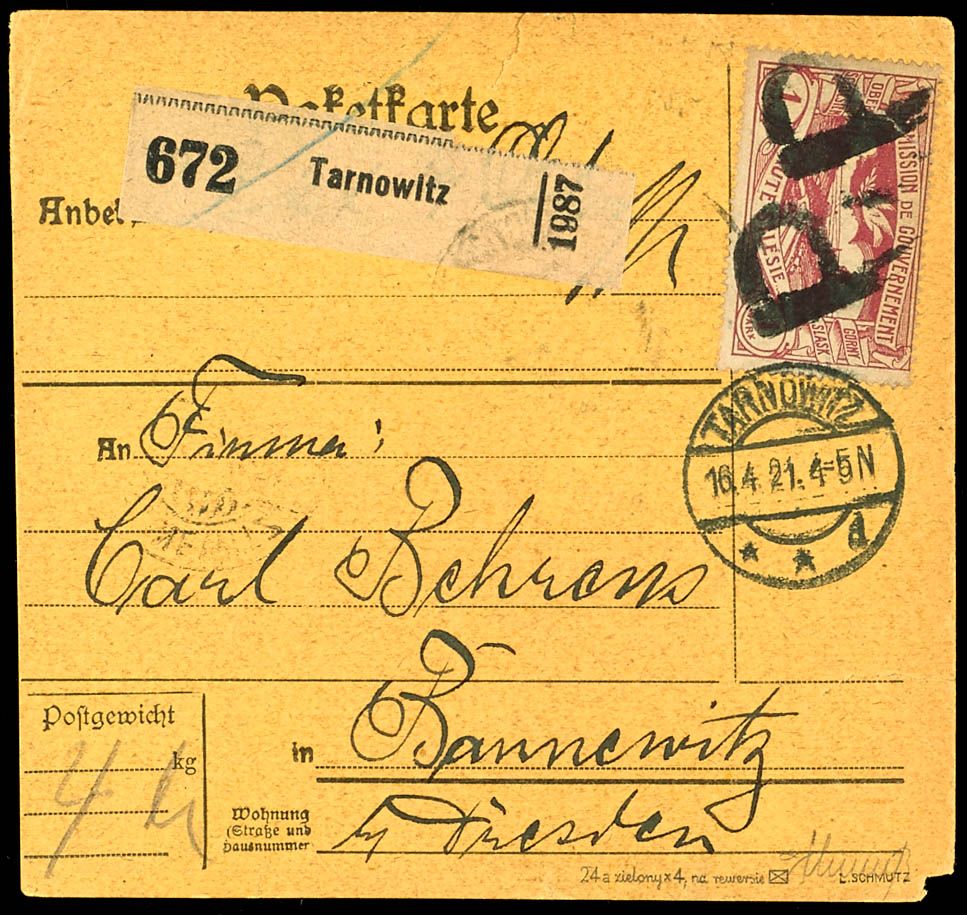 Paketkarte
672 Tarnowitz 1987
Anbei
1
COMMISSION DE GOUVERNEMENT
HAUTE SILESIE
GÓRNY ŚLĄSK
P.P.
TARNOWITZ
16.4.21.4-5N
* * d
An Firma:
Carl Behrens
Postgewicht
kg
4 k
in Bannewitz
Wohnung
(Straße und
Hausnummer
b/ Dresden
24a zielony x 4, na rewersie
L. SCHMUTZ